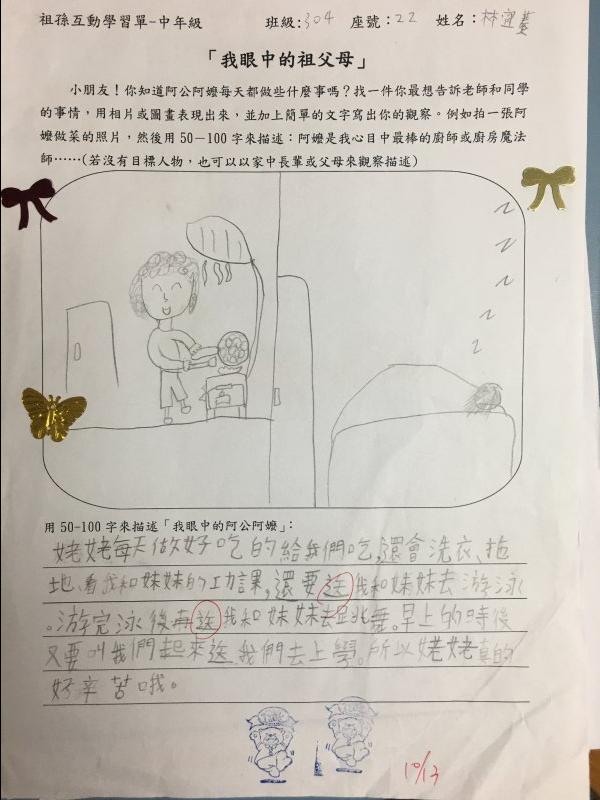 祖孫互動學習單-中年級 班級:304 座號:22 姓名:林
「我眼中的祖父母」
小朋友!你知道阿公阿嬤每天都做些什麼事嗎?找一件你最想告訴老師和同學
的事情,用相片或圖畫表現出來,並加上簡單的文字寫出你的觀察。例如拍一張阿
嬤做菜的照片,然後用50-100字來描述:阿嬤是我心目中最棒的廚師或廚房魔法
師……(若沒有目標人物,也可以以家中長輩或父母來觀察描述)
z
z
z
z
z
用50-100字來描述「我眼中的阿公阿嬤」:
姥姥每天做好吃的給我們吃,還會洗衣、拖
地、看我和妹妹的功課,還要送我和妹妹去游泳
。游完泳後再送我和妹妹去跳舞。早上的時後
又要叫我們起來送我們去上學。所以姥姥真的
好辛苦哦。
10/13